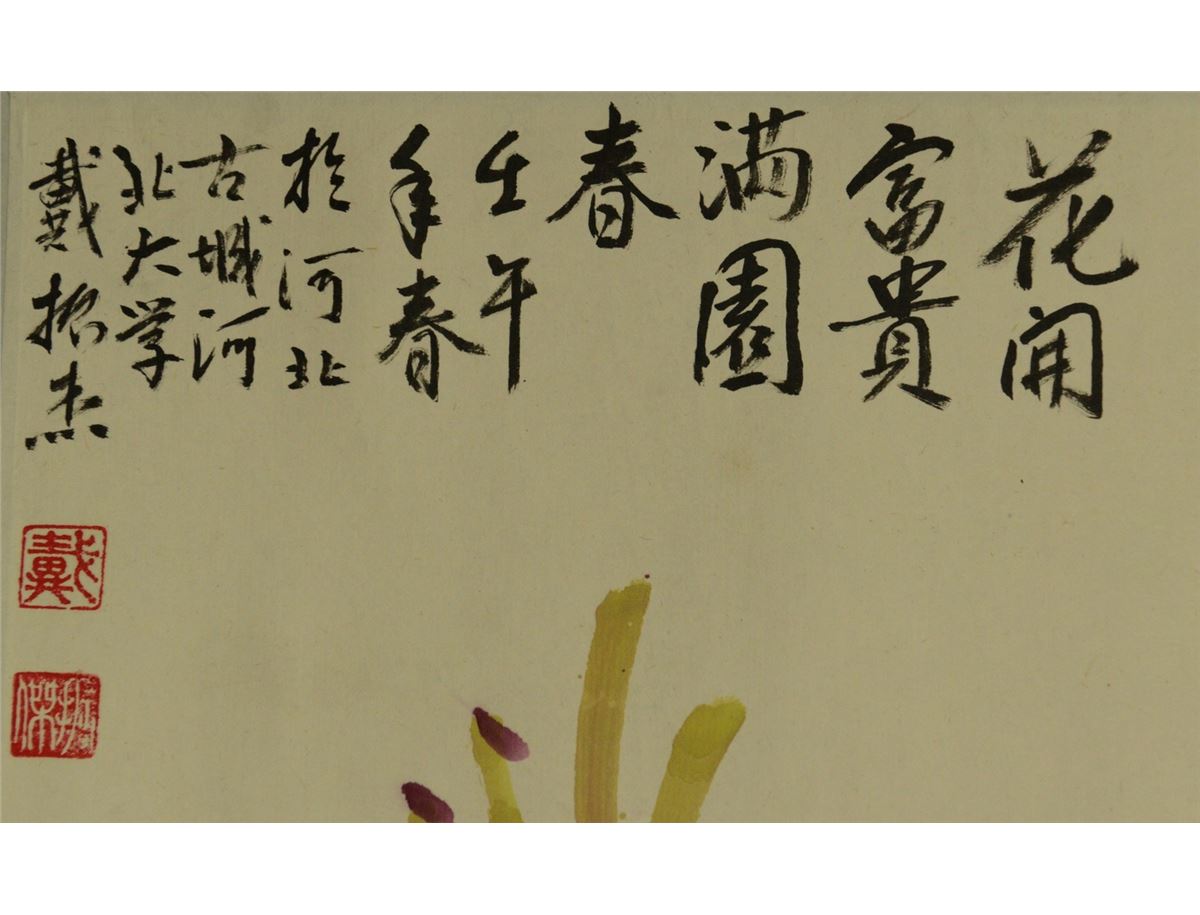 花开
富貴
满園
春
壬午
年春
於河北
古城河
北大学
戴振杰
戴
振傑